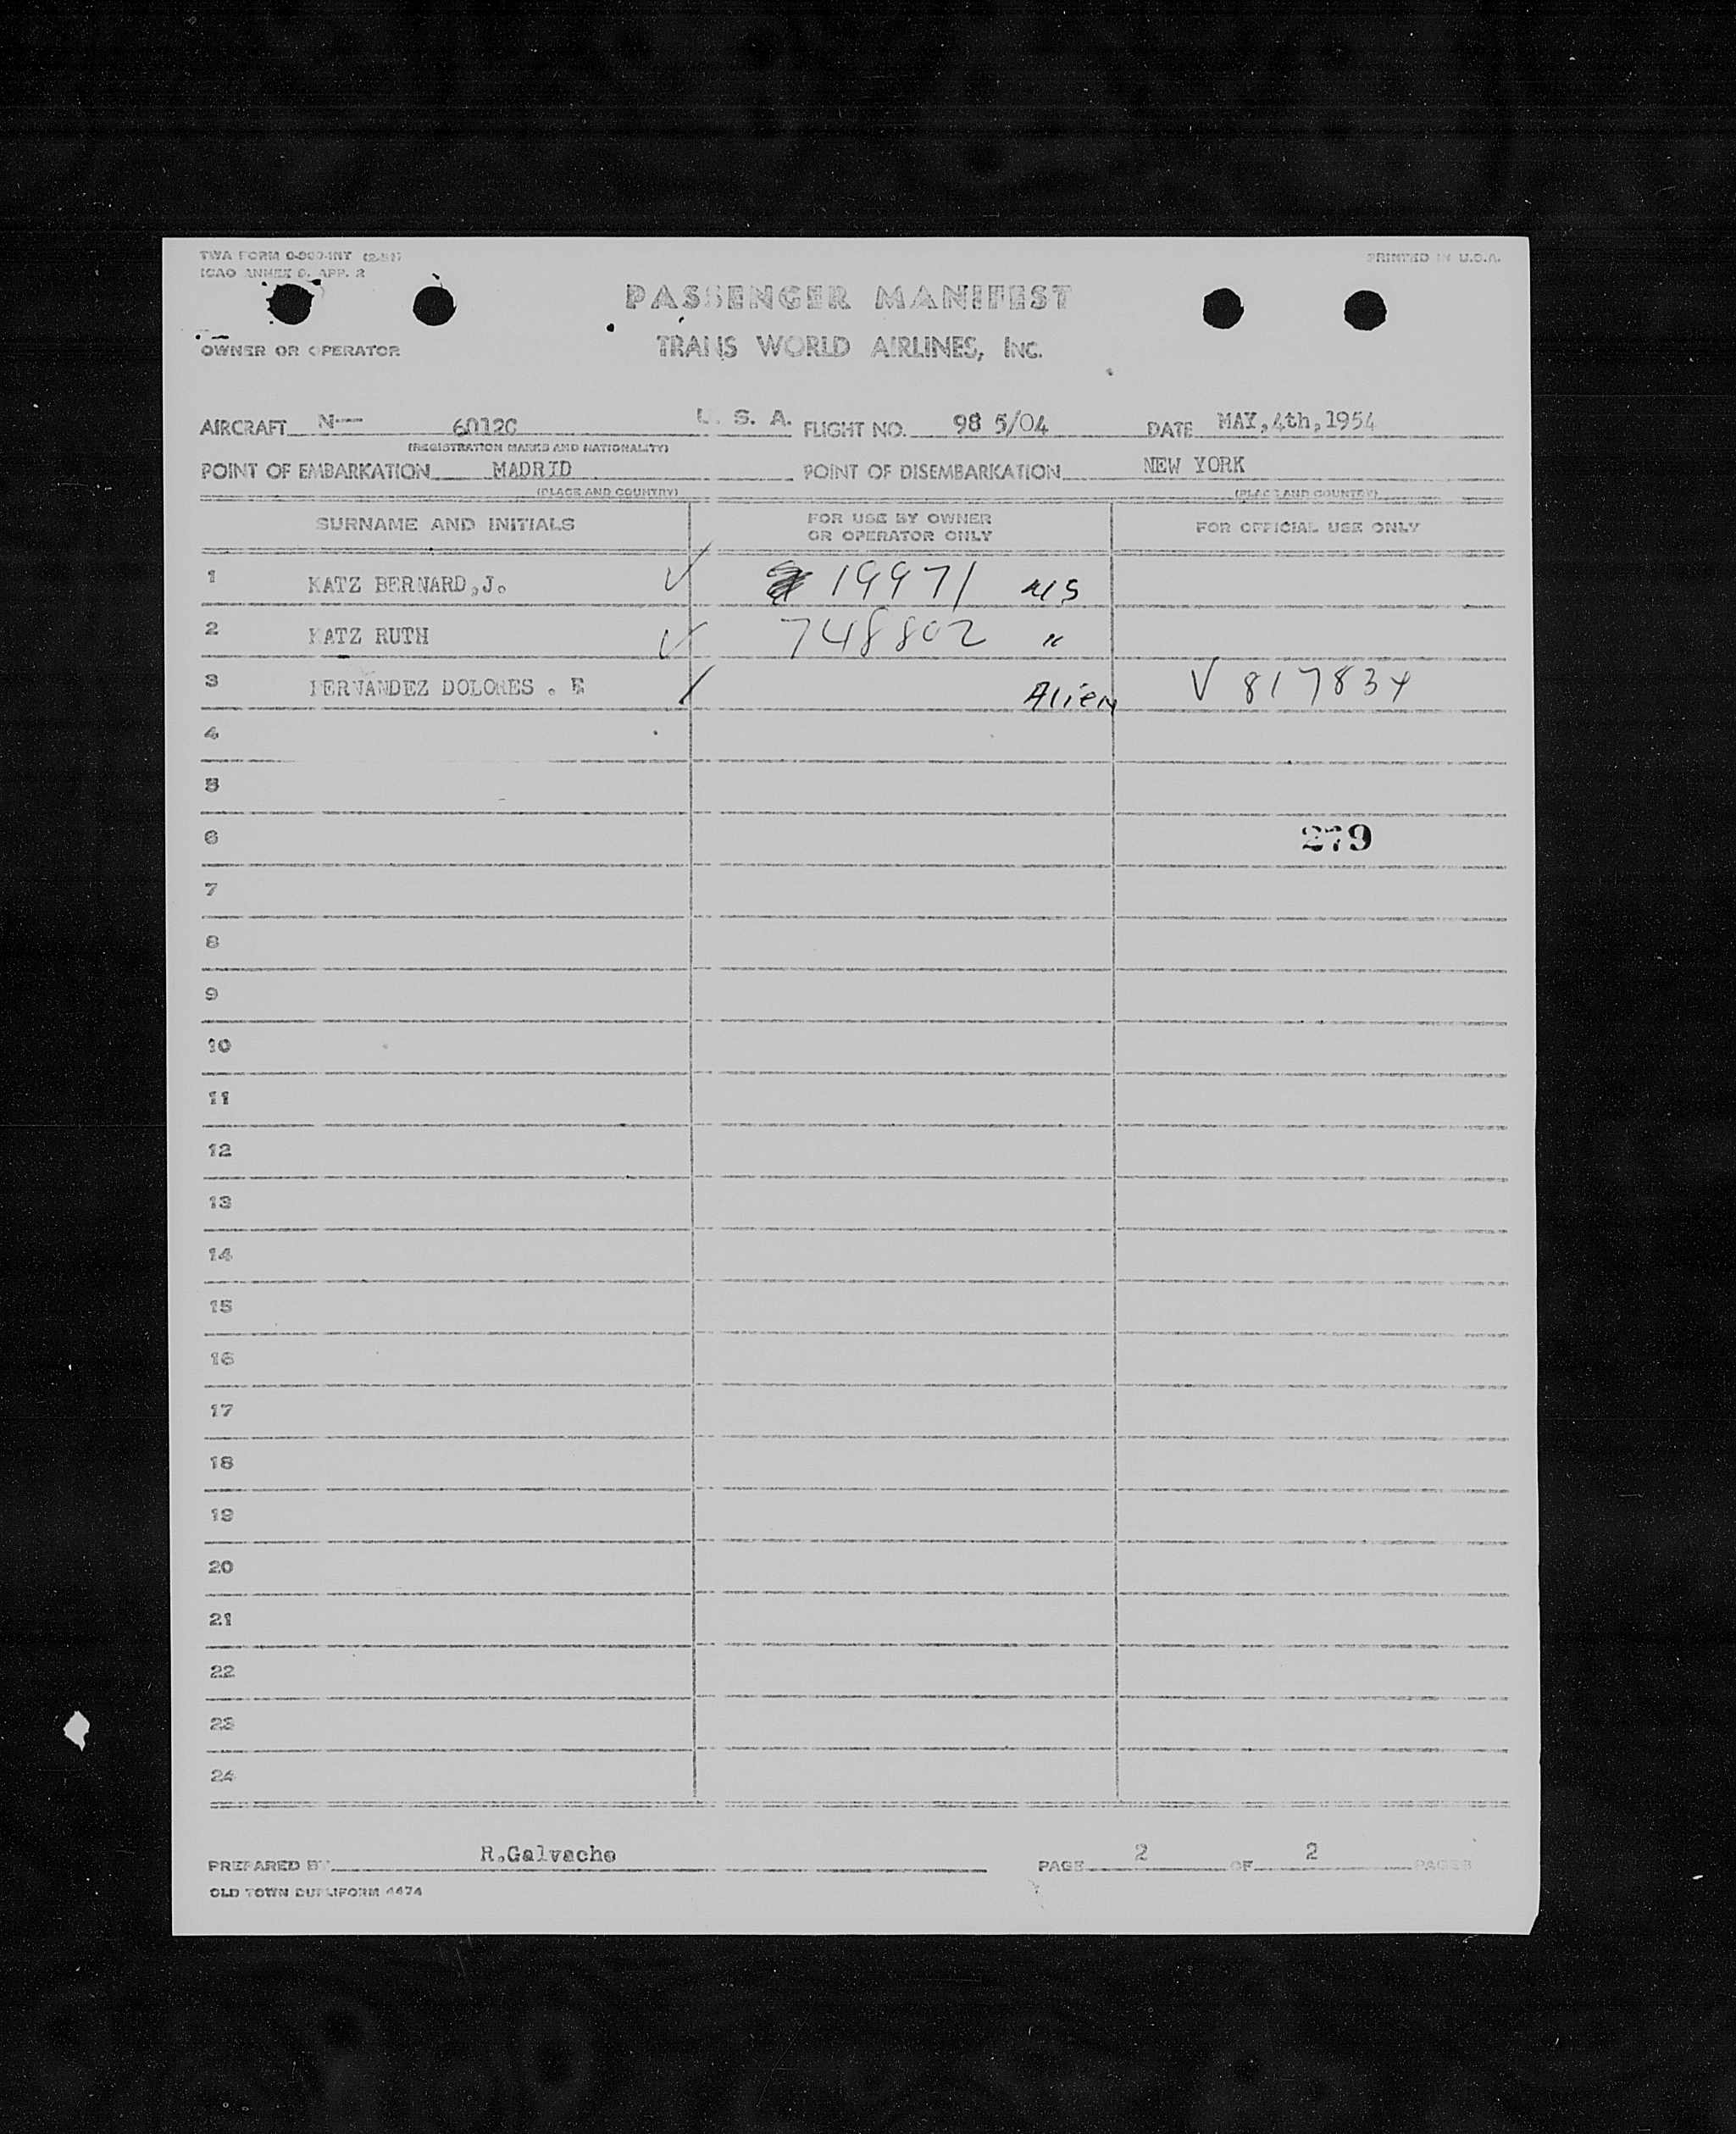 TWA FORM 0-900-INT (2-51)
ICAO ANNEX 9, APP. 2
PRINTED IN U.S.A.
PASSENGER MANIFEST
OWNER OR OPERATOR TRANS WORLD AIRLINES, INC.
AIRCRAFT N— 6012C U. S. A. FLIGHT NO. 98 5/04 DATE MAY,4th,1954
(REGISTRATION MARKS AND NATIONALITY)
POINT OF EMBARKATION MADRID POINT OF DISEMBARKATION NEW YORK
(PLACE AND COUNTRY) (PLACE AND COUNTRY)
SURNAME AND INITIALS FOR USE BY OWNER OR OPERATOR ONLY FOR OFFICIAL USE ONLY
1 KATZ BERNARD,J. 19971 US
2 KATZ RUTH 748802 "
3 FERNANDEZ DOLORES . E Alien V 817834
4
5
6 279
7
8
9
10
11
12
13
14
15
16
17
18
19
20
21
22
23
24
PREPARED BY R.Galvache PAGE 2 OF 2 PAGES
OLD TOWN DUPLIFORM 4474